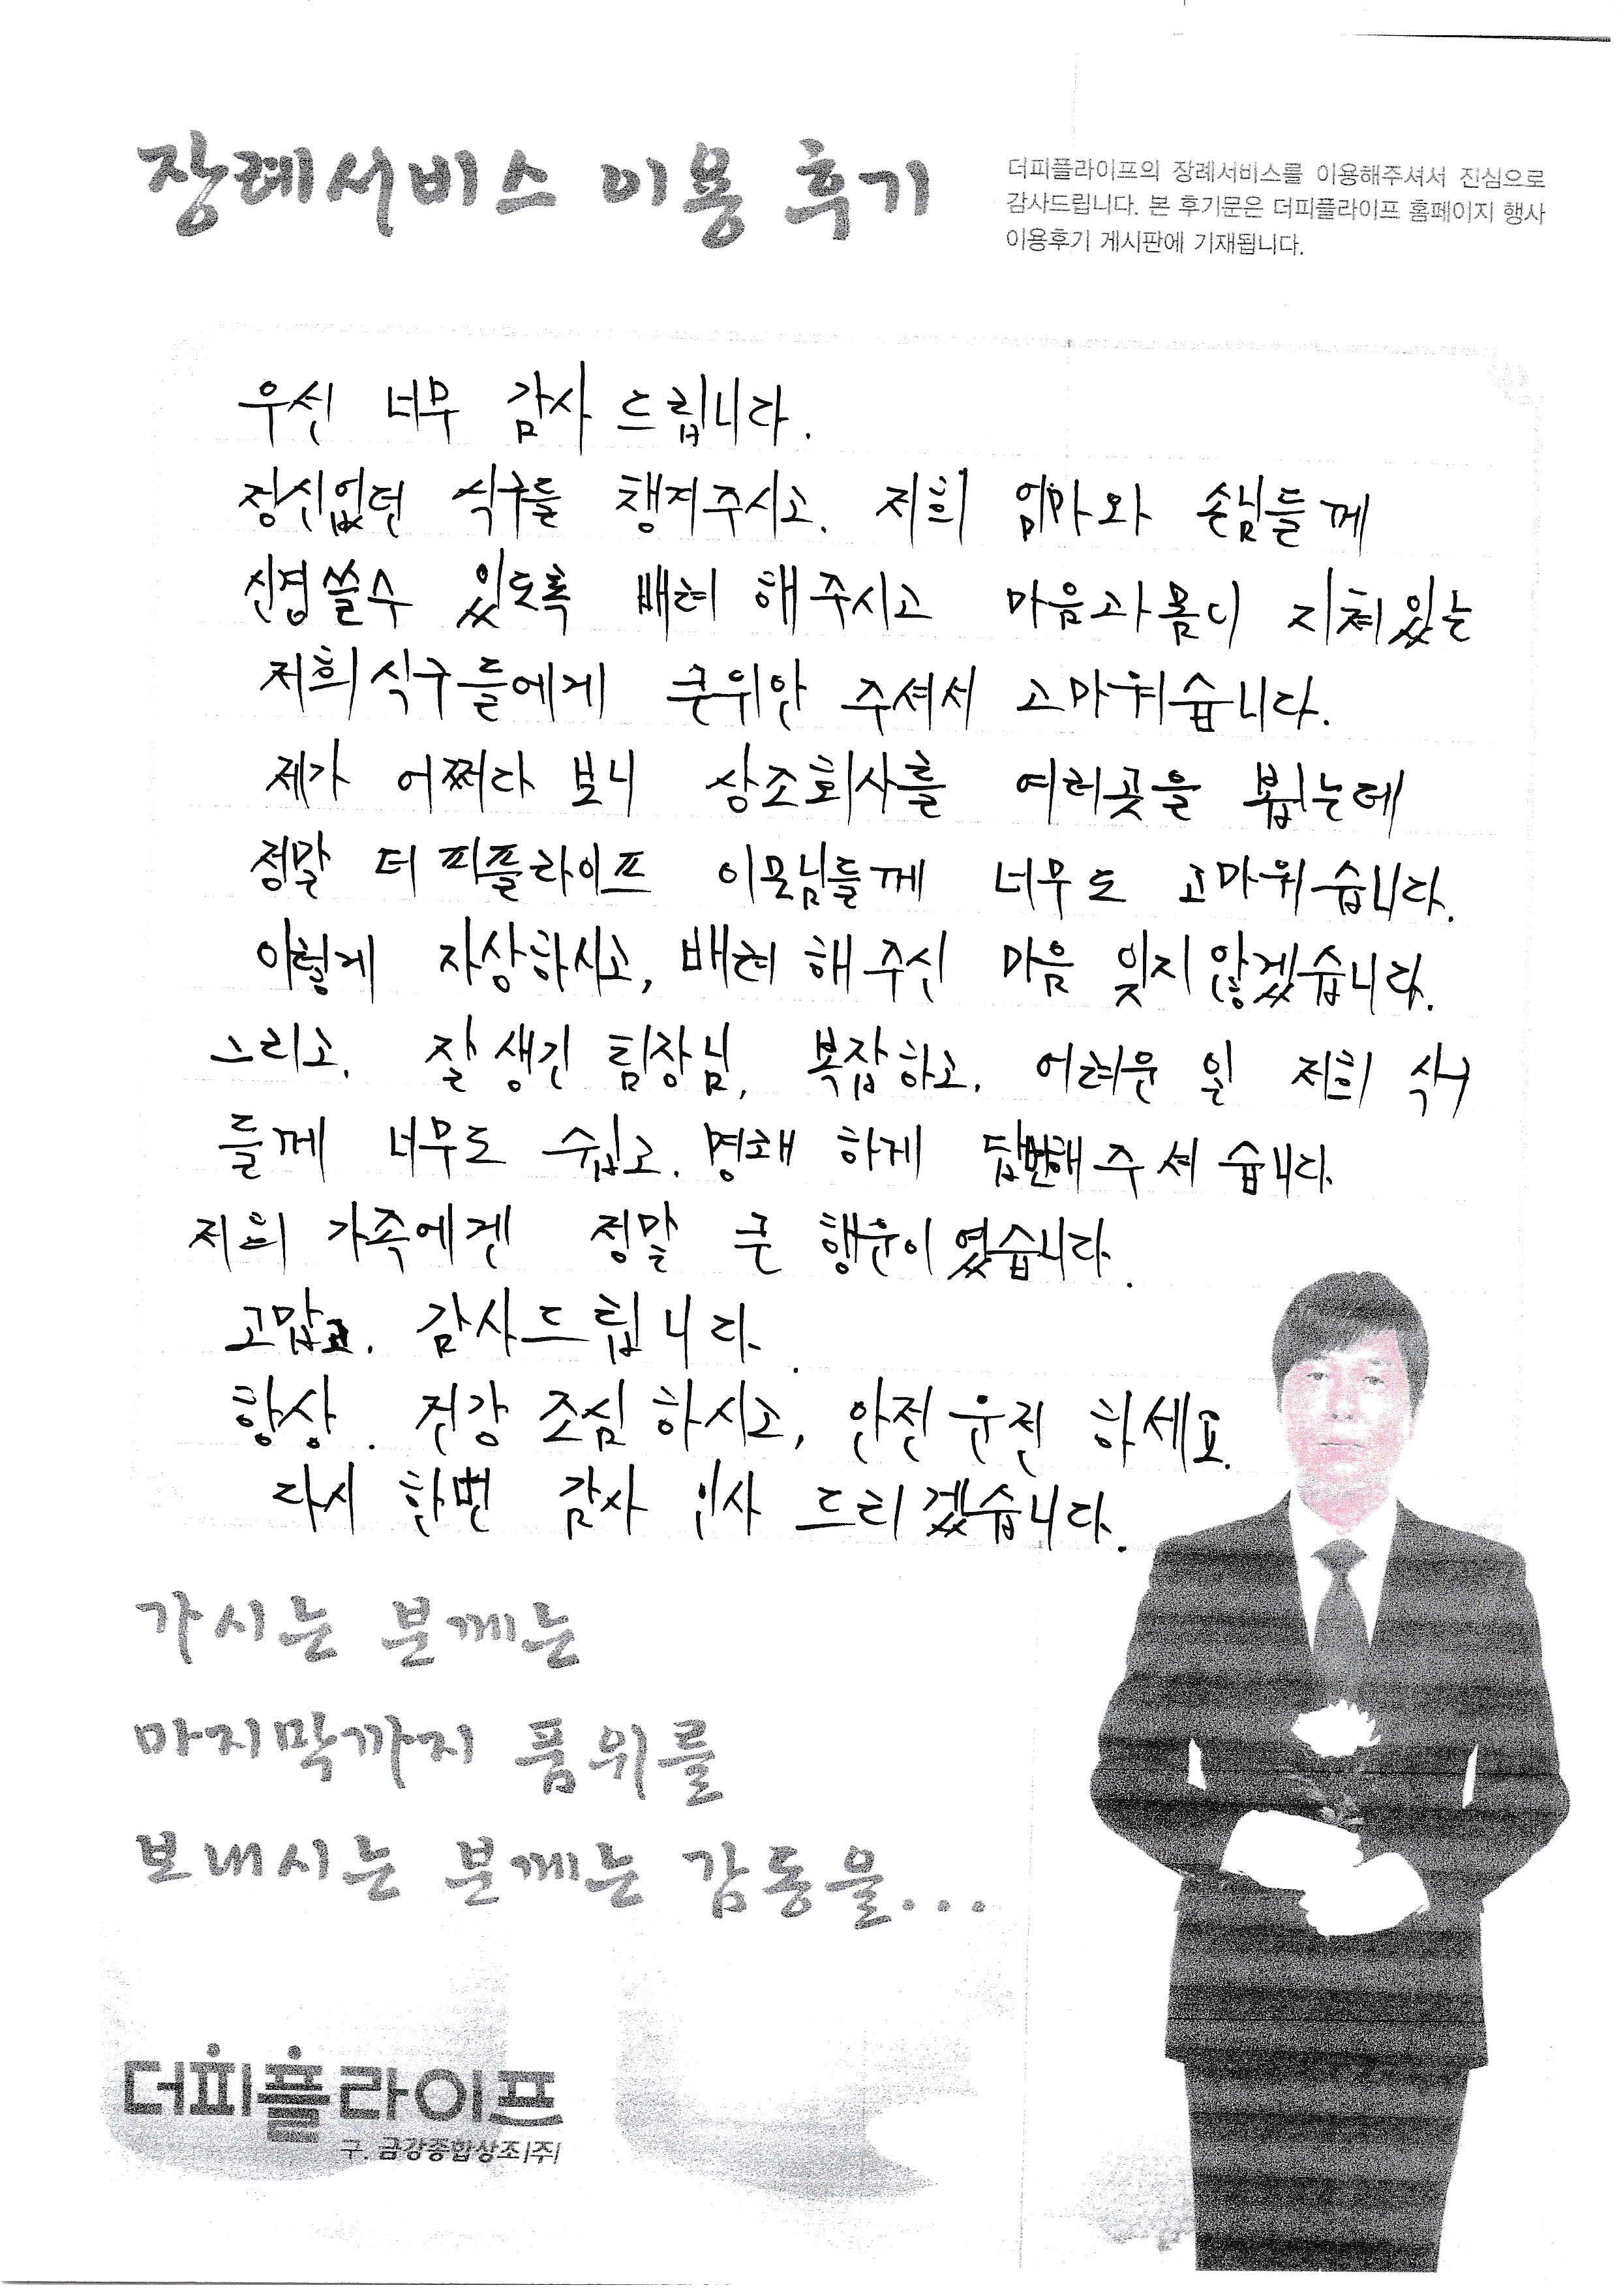 장례서비스 이용 후기
더피플라이프의 장례서비스를 이용해주셔서 진심으로
감사드립니다. 본 후기문은 더피플라이프 홈페이지 행사
이용후기 게시판에 기재됩니다.
우선 너무 감사 드립니다.
정신없던 식구를 챙겨주시고. 저희 엄마와 손님들께
신경쓸수 있도록 배려 해주시고 마음과몸이 지쳐있는
저희식구들에게 큰위안 주셔서 고마워습니다.
제가 어쩌다 보니 상조회사를 여러곳을 봅는데
정말 더피플라이프 이모님들께 너무도 고마워습니다.
이렇게 자상하시고, 배려 해주신 마음 잊지않겠습니다.
그리고. 잘생긴 팀장님, 복잡하고. 어려운 일 저희 식구
들께 너무도 쉽고. 명쾌 하게 답변해주셔습니다.
저희 가족에겐 정말 큰 행운이였습니다.
고맙고. 감사드립니다.
항상. 건강 조심하시고, 안전운전 하세요.
다시 한번 감사 인사 드리겠습니다.
가시는 분께는
마지막까지 품위를
보내시는 분께는 감동을...
더피플라이프
구. 금강종합상조(주)